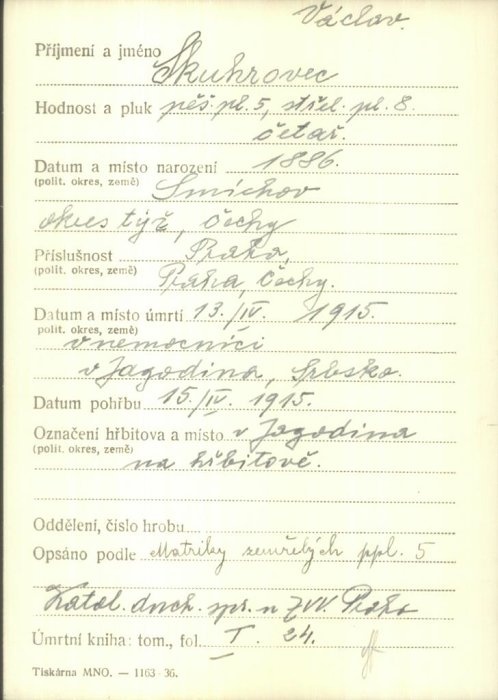 Václav.
Příjmení a jméno Skuhrovec
Hodnost a pluk pěš. pl. 5, střel. pl. 8.
četař.
Datum a místo narození 1886.
(polit. okres, země) Smíchov
okres týž, Čechy
Příslušnost Praha,
(polit. okres, země) Praha, Čechy.
Datum a místo úmrtí 13./IV. 1915.
polit. okres, země)
v nemocnici
v Jagodina, Srbsko.
Datum pohřbu 15./IV. 1915.
Označení hřbitova a místo v Jagodina
(polit. okres, země)
na hřbitově.
Oddělení, číslo hrobu
Opsáno podle Matriky zemřelých ppl. 5
Katol. duch. spr. u ZVV. Praha
Úmrtní kniha: tom., fol. I. 24.
Tiskárna MNO. — 1163-36.